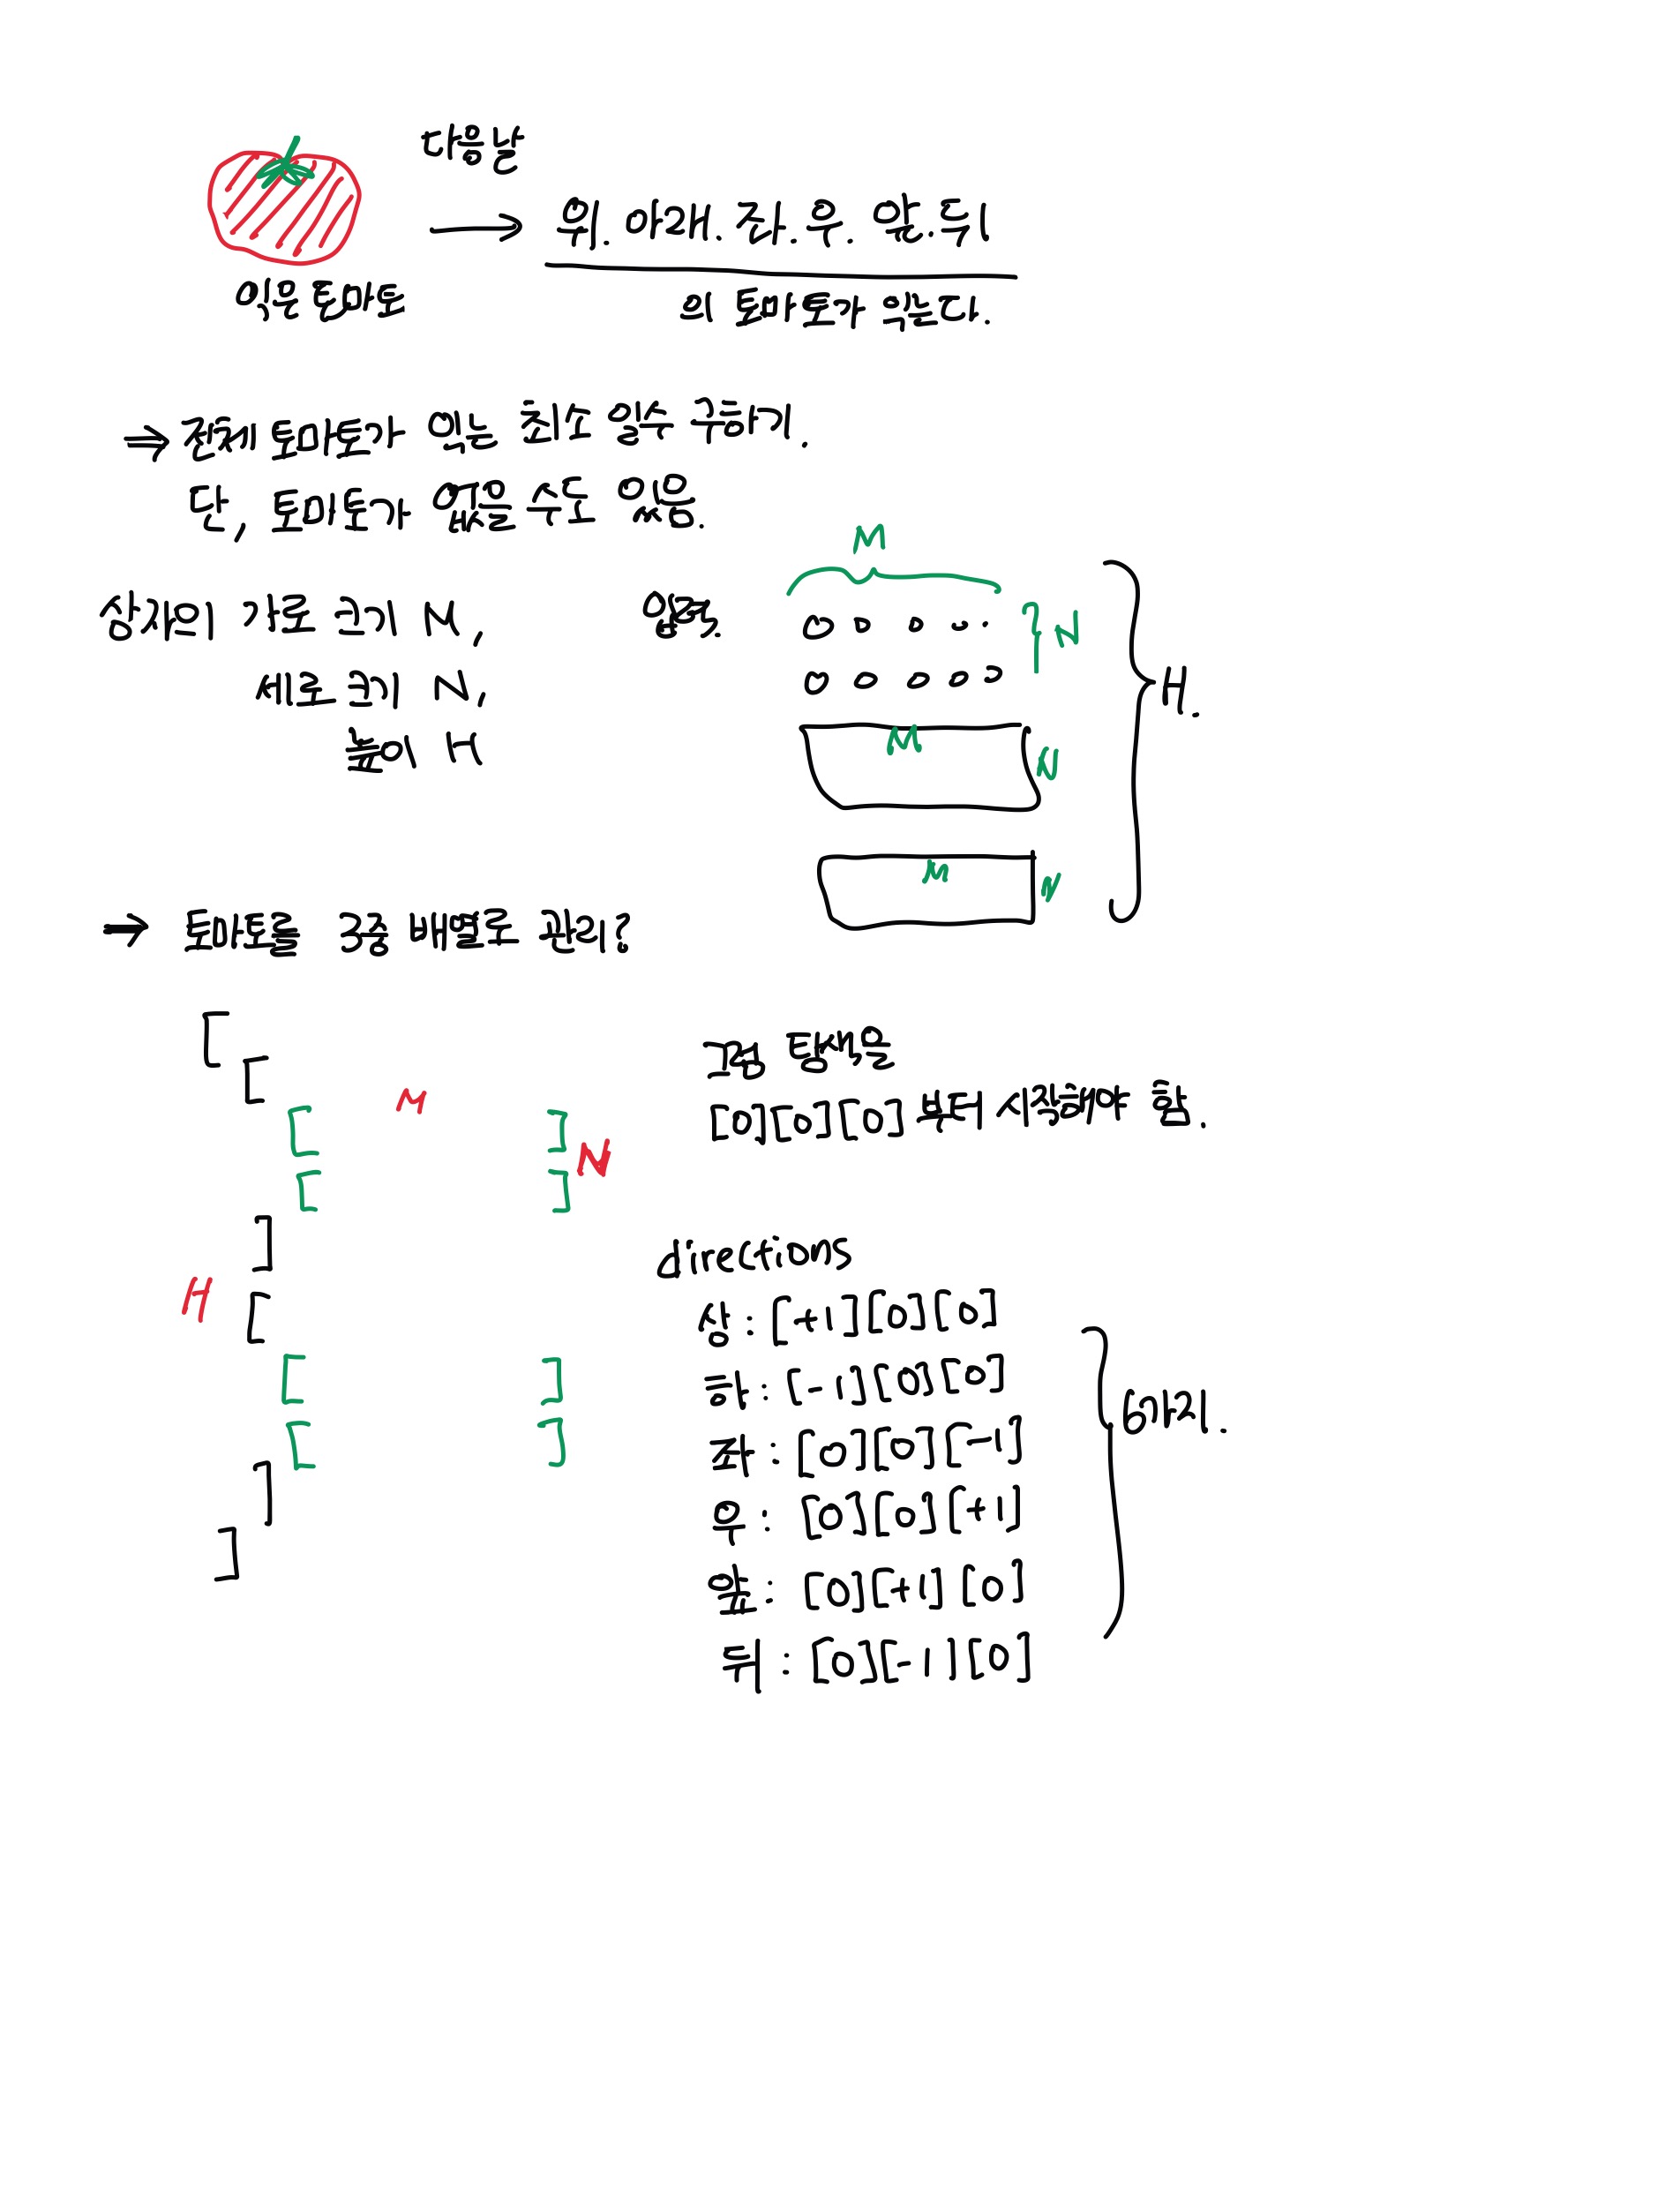 다음날
위. 아래. 좌. 우. 앞. 뒤
익은 토마토
의 토마토가 익는다.
⇒ 전체 토마토가 익는 최소 일수 구하기.
단, 토마토가 없을 수도 있음.
상자의 가로 크기 N,
세로 크기 N,
높이 H
입력.
M
0 0 0 0 0
N
0 0 0 0 0
M
N
M
N
H.
→ 토마토를 3중 배열로 관리?
[
[
[ M ]
[ ] N
]
H
[
[ ]
[ ]
]
]
그럼 탐색을
[0][0][0] 부터 시작해야 함.
directions
상 : [+1][0][0]
하 : [-1][0][0]
좌 : [0][0][-1]
우 : [0][0][+1]
앞 : [0][+1][0]
뒤 : [0][-1][0]
6가지.